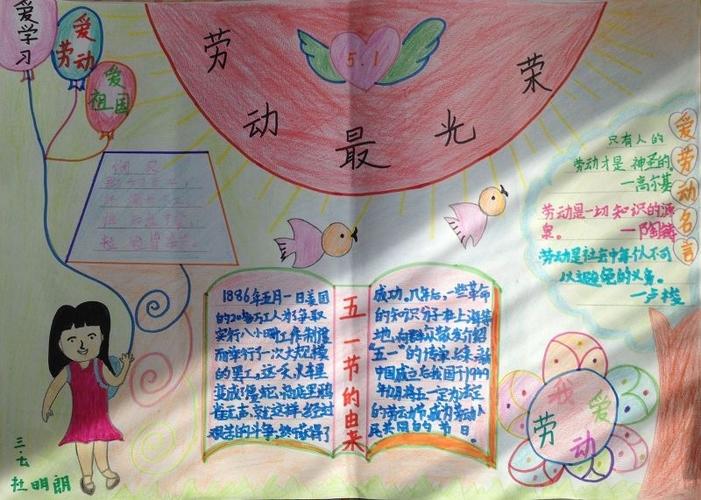 爱学习
爱劳动
爱祖国
5.1
劳动最光荣
爱劳动名言
只有人的
劳动才是神圣的
—高尔基
劳动是一切知识的源
泉。 —陶铸
劳动是社会中每个人不可
以避免的义务。
—卢梭
五一节的由来
1886年五月一日美国
的20多万工人为争取
实行八小时工作制
而举行了一次大规模
的罢工。这一天
经过
艰苦的斗争,终于取得了
成功。几年后,一些革命
的知识分子在上海等
地,向群众散发介绍
"五一"的传单
中国成立后我国于1949
年
的劳动节,成为劳动人
民共同的节日。
我爱劳动
三、七
杜明朗